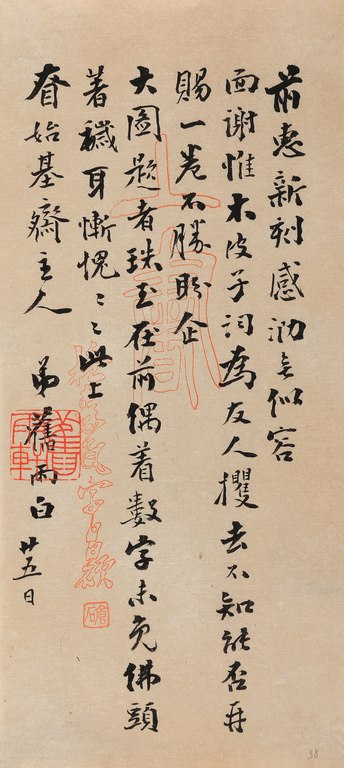 前惠新刻感泐無似容
面謝惟木皮子詞為友人攫去不知能否再
賜一卷不勝盼企
大圖題者珠玉在前偶着數字未免佛頭
著穢耳慚愧〻〻此上
眘始基齋主人 弟舊雨白 廿五日